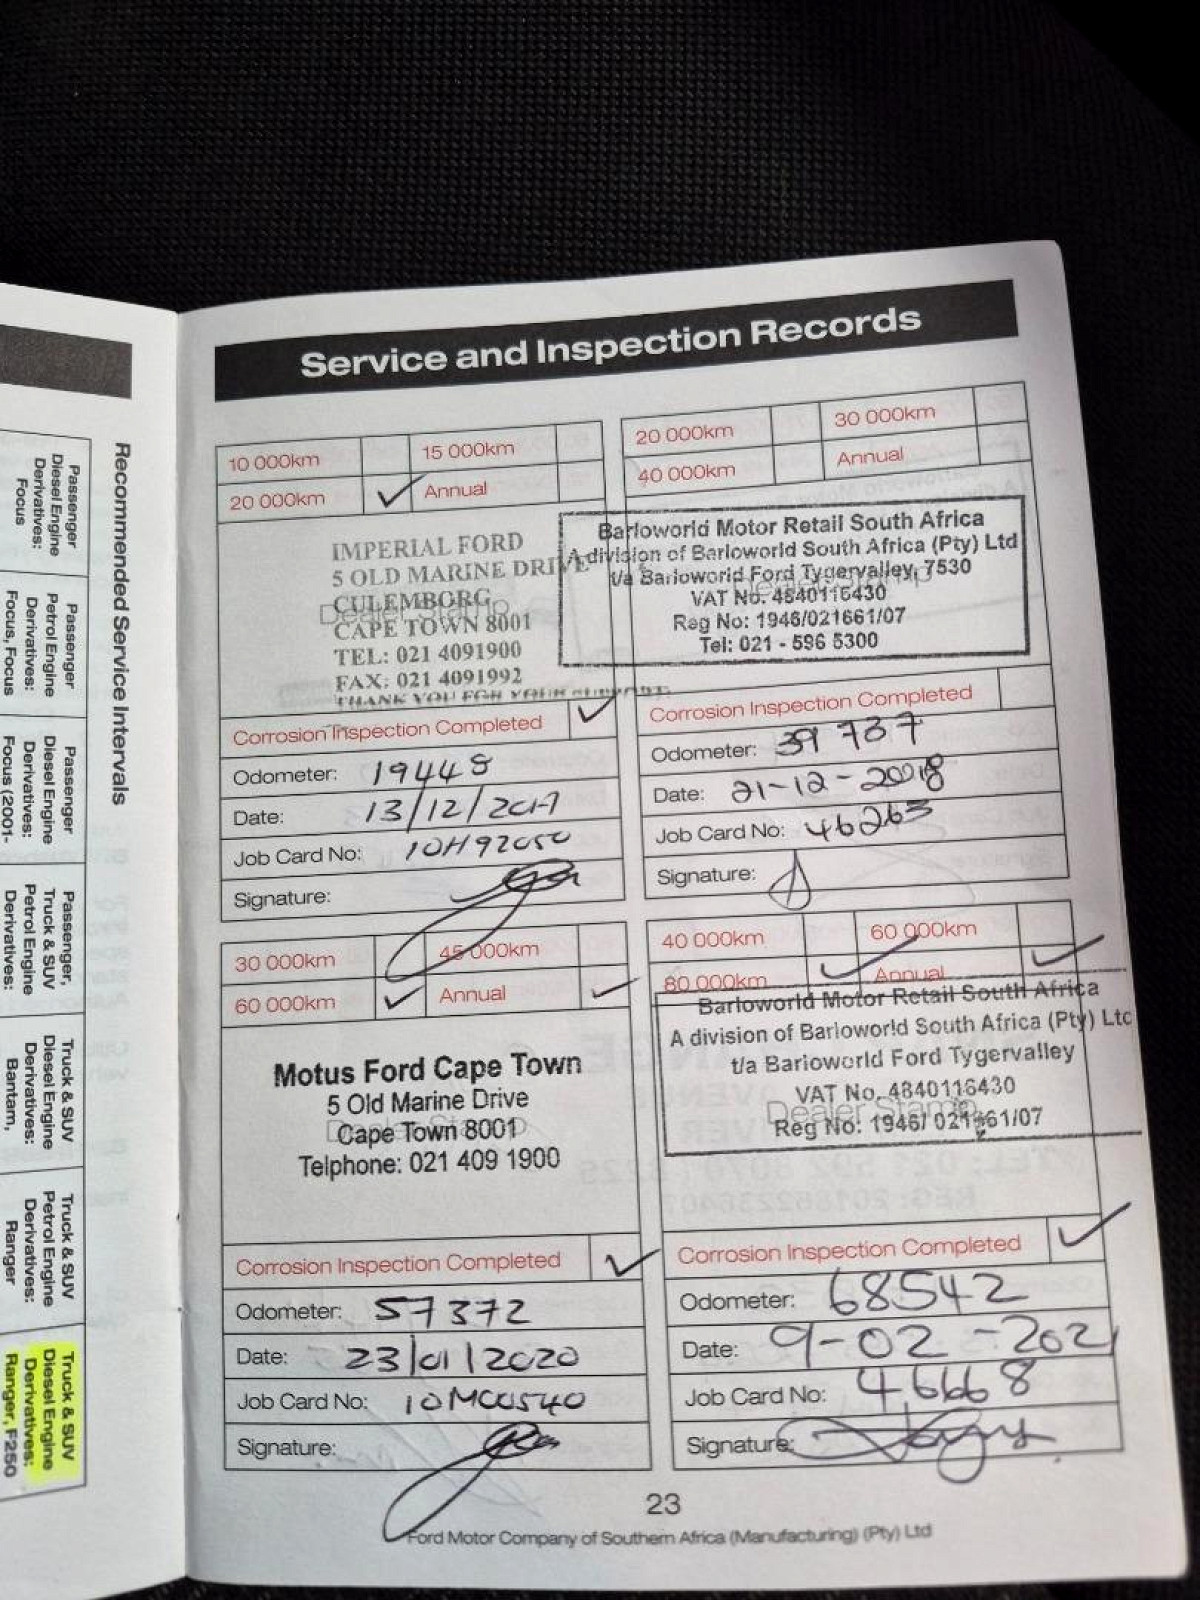 Service and Inspection Records
10 000km
15 000km
20 000km ✓
Annual
IMPERIAL FORD
5 OLD MARINE DRIVE
CULEMBORG
Dealer Stamp
CAPE TOWN 8001
TEL: 021 4091900
FAX: 021 4091992
THANK YOU FOR YOUR SUPPORT.
Corrosion Inspection Completed ✓
Odometer: 19448
Date: 13/12/2017
Job Card No: 10H92050
Signature:
20 000km
30 000km
40 000km
Annual
Barloworld Motor Retail South Africa
A division of Barloworld South Africa (Pty) Ltd
t/a Barloworld Ford Tygervalley, 7530
Dealer Stamp
VAT No. 4840116430
Reg No: 1946/021661/07
Tel: 021 - 596 5300
Corrosion Inspection Completed
Odometer: 39737
Date: 21-12-2018
Job Card No: 46263
Signature:
30 000km
45 000km
60 000km ✓
Annual ✓
Motus Ford Cape Town
5 Old Marine Drive
Dealer Stamp
Cape Town 8001
Telphone: 021 409 1900
Corrosion Inspection Completed ✓
Odometer: 57372
Date: 23/01/2020
Job Card No: 10MC0540
Signature:
40 000km
60 000km
80 000km ✓
Annual ✓
Barloworld Motor Retail South Africa
A division of Barloworld South Africa (Pty) Ltd
t/a Barloworld Ford Tygervalley
VAT No. 4840116430
Dealer Stamp
Reg No: 1946/ 021661/07
Corrosion Inspection Completed ✓
Odometer: 68542
Date: 9-02-2021
Job Card No: 46668
Signature:
23
Ford Motor Company of Southern Africa (Manufacturing) (Pty) Ltd
Recommended Service Intervals
Passenger
Diesel Engine
Derivatives:
Focus
Passenger
Petrol Engine
Derivatives:
Focus, Focus
Passenger
Diesel Engine
Derivatives:
Focus (2001-
Passenger,
Truck & SUV
Petrol Engine
Derivatives:
Truck & SUV
Diesel Engine
Derivatives:
Bantam,
Truck & SUV
Petrol Engine
Derivatives:
Ranger
Truck & SUV
Diesel Engine
Derivatives:
Ranger, F250